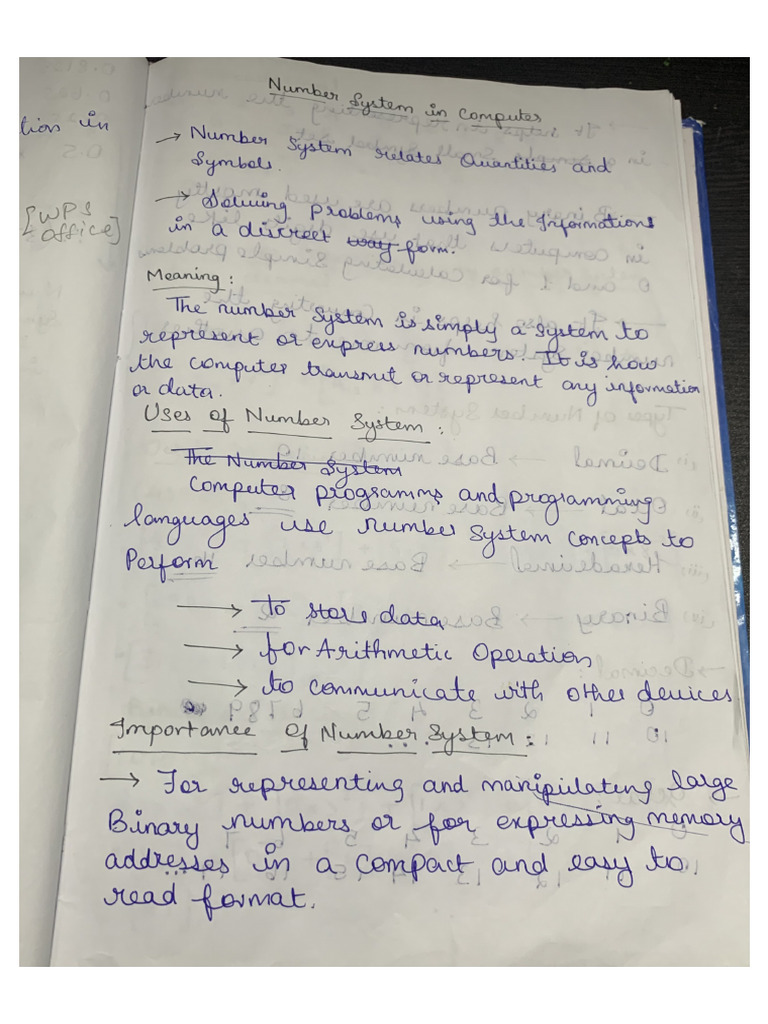 Number System in Computer
→ Number System relates Quantities and
Symbols.
→ Solving problems using the Informations
in a discreet way form.
Meaning:
The number System is simply a System to
represent or express numbers. It is how
the computer transmit or represent any information
or data.
Uses of Number System:
The Number System
Computer programms and programming
languages use number System concepts to
Perform
→ To store data
→ for Arithmetic Operation
→ to communicate with other devices
Importance Of Number System:
→ For representing and manipulating large
Binary numbers or for expressing memory
addresses in a compact and easy to
read format.
tion in
[WPS
office]